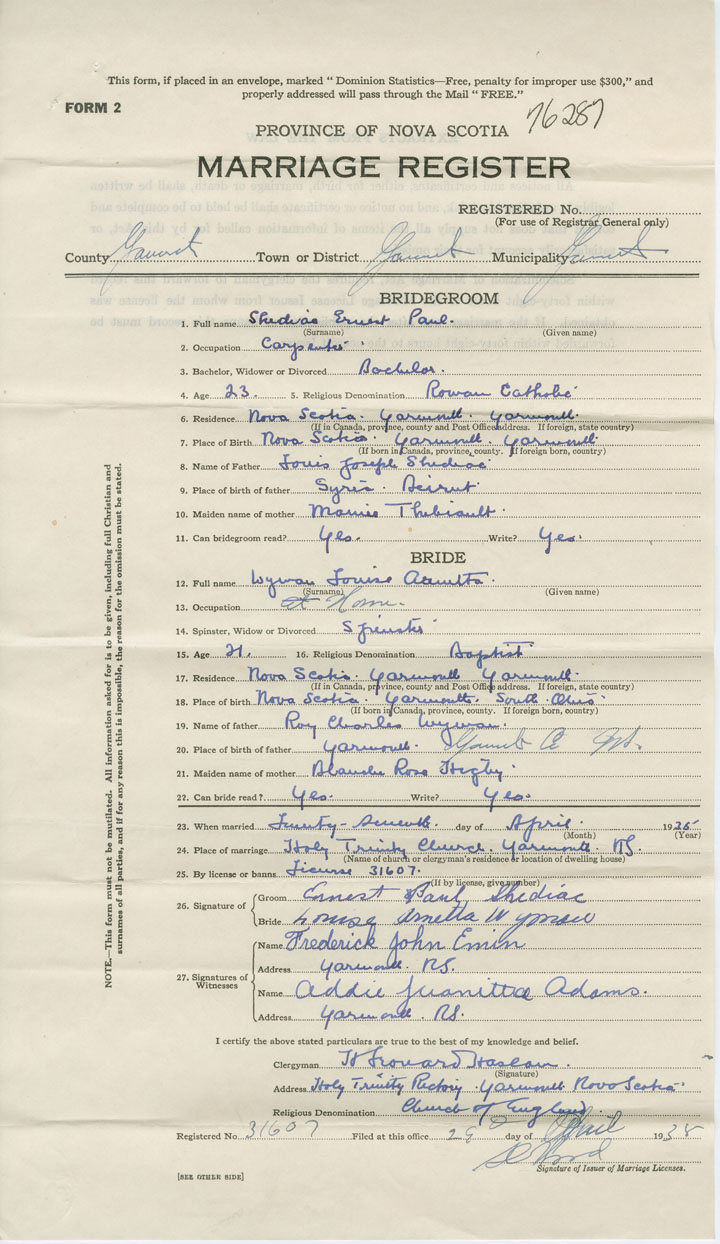 This form, if placed in an envelope, marked “ Dominion Statistics—Free, penalty for improper use $300,” and
properly addressed will pass through the Mail “ FREE.”
FORM 2
76287
PROVINCE OF NOVA SCOTIA
MARRIAGE REGISTER
REGISTERED No.
(For use of Registrar General only)
County Town or District Municipality
BRIDEGROOM
1. Full name Shediac Ernest Paul.
(Surname) (Given name)
2. Occupation Carpenter
3. Bachelor, Widower or Divorced Bachelor.
4. Age 23. 5. Religious Denomination Roman Catholic
6. Residence Nova Scotia. Yarmouth. Yarmouth.
(If in Canada, province, county and Post Office address. If foreign, state country)
7. Place of Birth Nova Scotia. Yarmouth. Yarmouth.
(If born in Canada, province, county. If foreign born, country)
8. Name of Father Louis Joseph Shediac
9. Place of birth of father Syria. Beirut.
10. Maiden name of mother Thebiault.
11. Can bridegroom read? Yes. Write? Yes.
BRIDE
12. Full name Wyman Louise
(Surname) (Given name)
13. Occupation At Home.
14. Spinster, Widow or Divorced Spinster
15. Age 21. 16. Religious Denomination Baptist
17. Residence Nova Scotia. Yarmouth Yarmouth.
(If in Canada, province, county and Post Office address. If foreign, state country)
18. Place of Birth Nova Scotia. Yarmouth. South Ohio.
(If born in Canada, province, county. If foreign born, country)
19. Name of father Roy Charles Wyman.
20. Place of birth of father Yarmouth. Yarmouth Co NS.
21. Maiden name of mother Blanche Rose Higby.
22. Can bride read? Yes. Write? Yes.
23. When married Twenty-Seventh. day of April. 1935
(Month) (Year)
24. Place of marriage Holy Trinity Church. Yarmouth. NS.
(Name of church or clergyman's residence or location of dwelling house)
25. By license or banns License 31607.
(If by license, give number)
26. Signature of
Groom Ernest Paul Shediac
Bride Louise Amelta Wyman
27. Signatures of Witnesses
Name Frederick John Emin
Address Yarmouth. NS.
Name Addie Juanitta Adams.
Address Yarmouth. NS.
I certify the above stated particulars are true to the best of my knowledge and belief.
Clergyman Haslam.
(Signature)
Address Holy Trinity Rectory. Yarmouth Nova Scotia
Religious Denomination Church of England.
Registered No 31607 Filed at this office 29 day of April 1935
Signature of Issuer of Marriage Licenses.
[SEE OTHER SIDE]
NOTE.—This form must not be mutilated. All information asked for is to be given, including full Christian and
surnames of all parties, and if for any reason this is impossible, the reason for the omission must be stated.